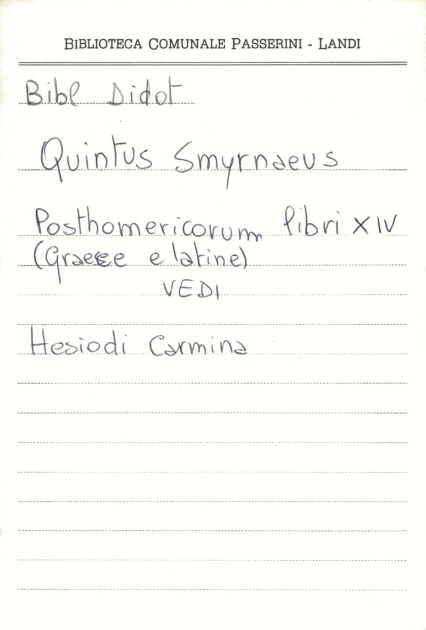 BIBLIOTECA COMUNALE PASSERINI - LANDI
Bibl Didot
Quintus Smyrnaeus
Posthomericorum libri XIV
(Graece e latine)
VEDI
Hesiodi Carmina